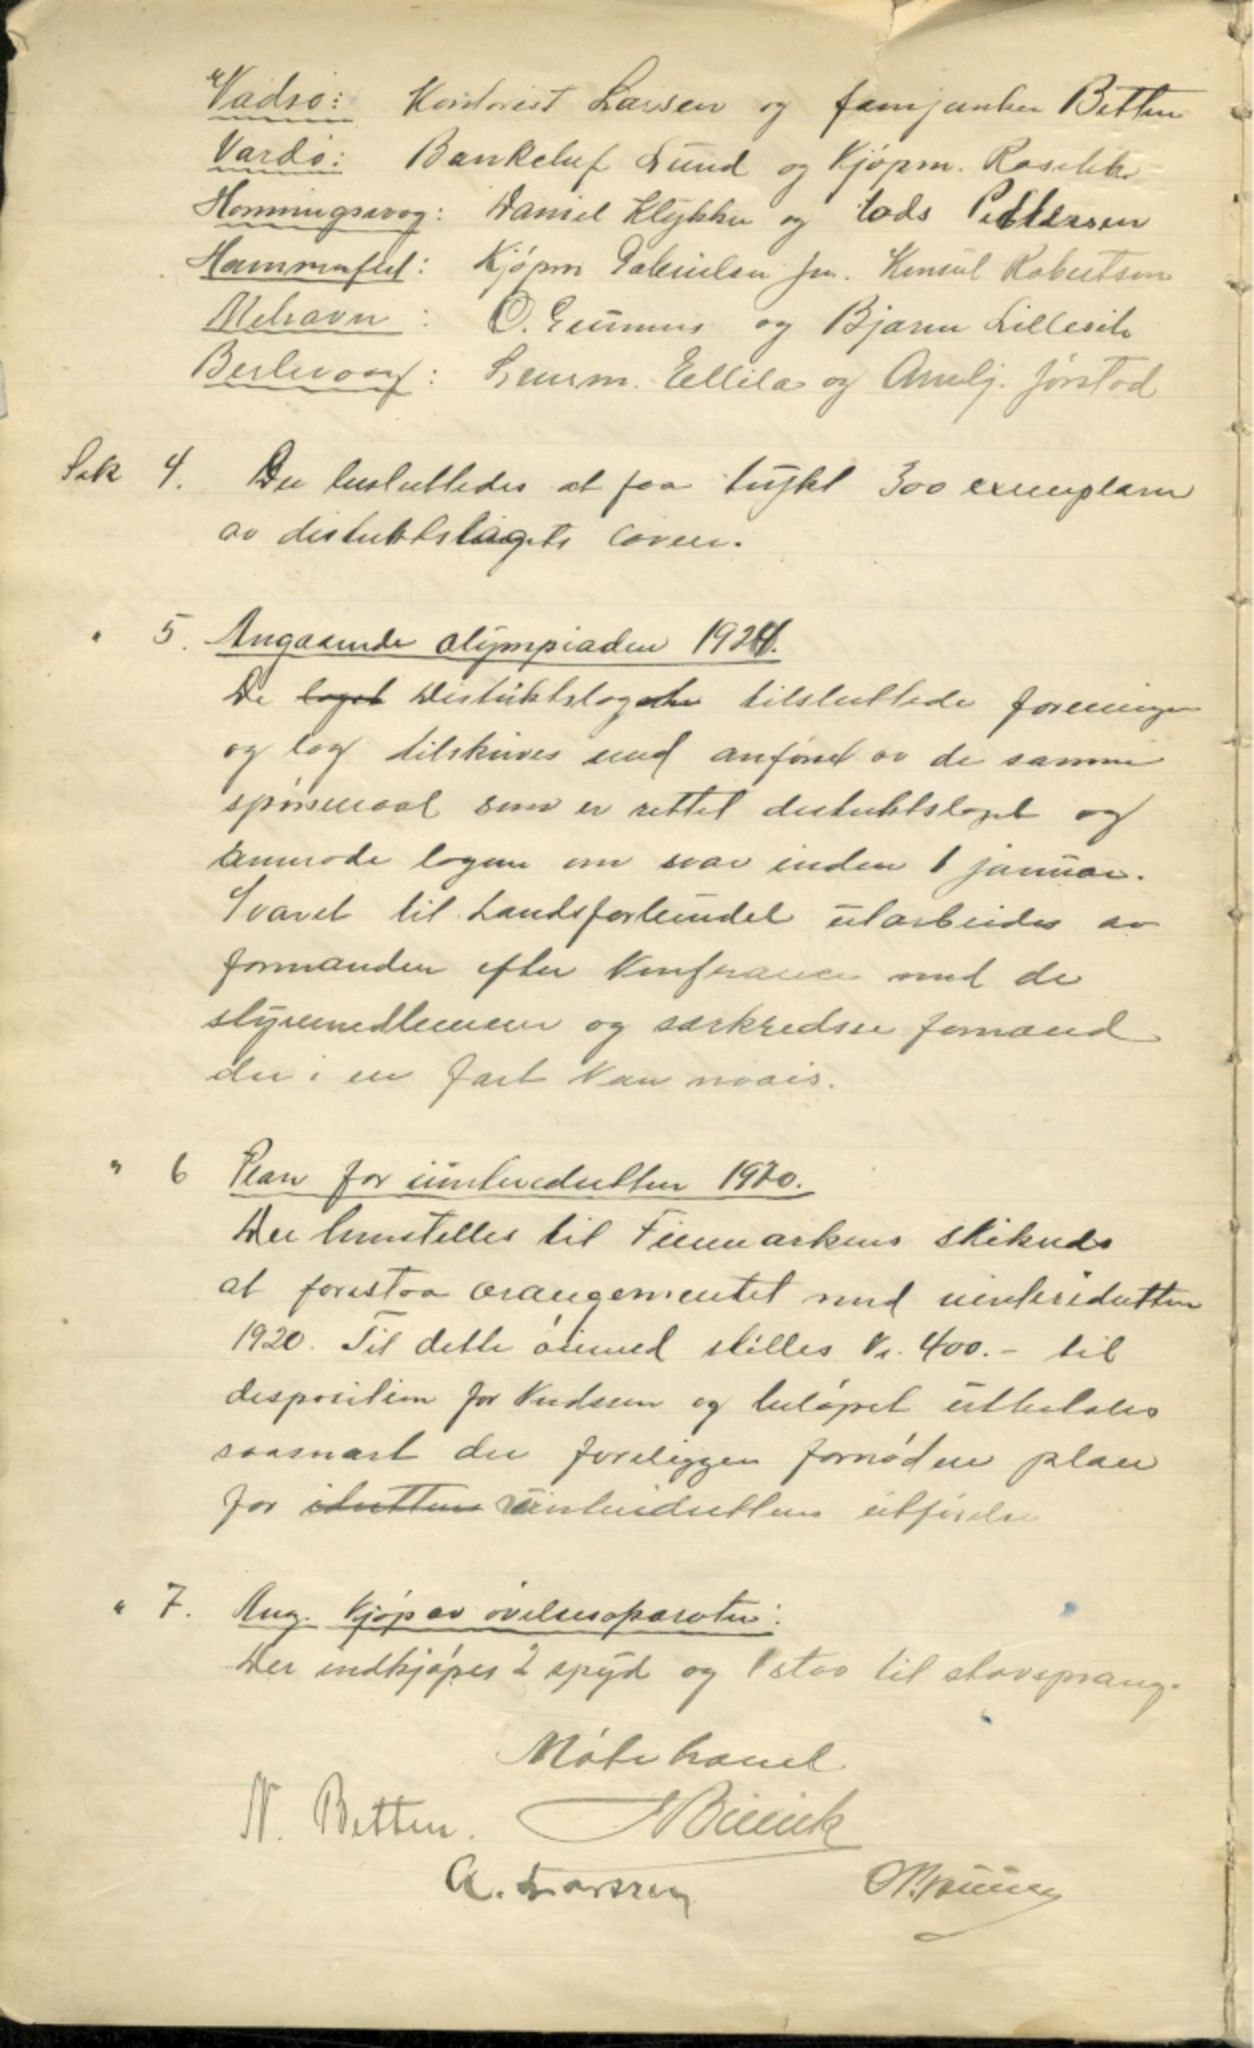 Vadsø: Kontorist Larsen og fanejunker Betten
Vardø: Bankchef Lund og Kjøpm. 
Honningsvaag: Daniel Klykken og Lods Pettersen
Hammerfest: Kjøpm Gabrielsen jr. Konsul Robertson
Mehavn: O. og Bjarne Lillevik
Berlevaag: Lensm. Ellila og Jørstad
Sak 4. Der besluttedes at faa trykt 300 exemplarer
av distriktslagets loven.
" 5. Angaaende olympiaden 1924.
De laget Distriktslagets tilsluttede foreninger
og lag tilskrives med anførsel av de samme
spørsmaal som er rettet distriktslaget og
anmode lagene om svar inden 1 januar.
Svaret til Landsforbundet utarbeides av
formanden efter konferance med de
styremedlemmer og særkredsse formænd
der i en fart kan naaes.
" 6 Plan for vinteridretten 1920.
Der henstilles til Finmarkens skikreds
at forestaa arangementet med vinteridretten
1920. Til dette øiemed stilles kr. 400.- til
disposition for kredsen og beløpet utbetales
saasnart der foreligger fornøden plan
for idrettens vinteridrettens utførelse
" 7. Ang. kjøp av øvelsesaparater:
Der indkjøpes 2 spyd og 1 stav til stavsprang.
Møte hævet
N. Betten.
A. Larssen